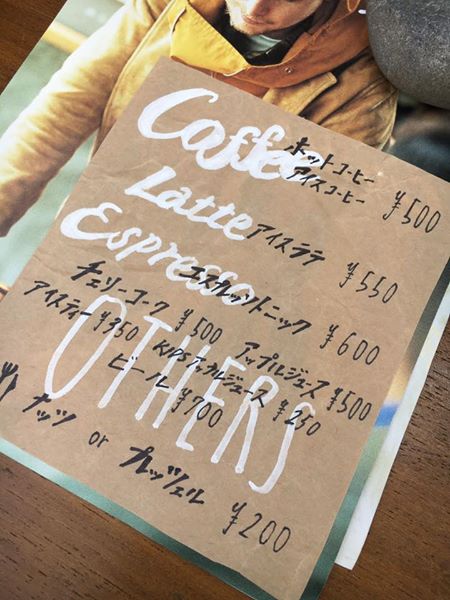 Caffee
ホットコーヒー
アイスコーヒー ¥500
Latte アイスラテ ¥550
Espresso エスプレッソトニック ¥600
チェリーコーク ¥500 アップルジュース ¥500
アイスティー ¥350 KIDSアップルジュース ¥250
ビール ¥700
OTHERS
ナッツ or プレッツェル ¥200